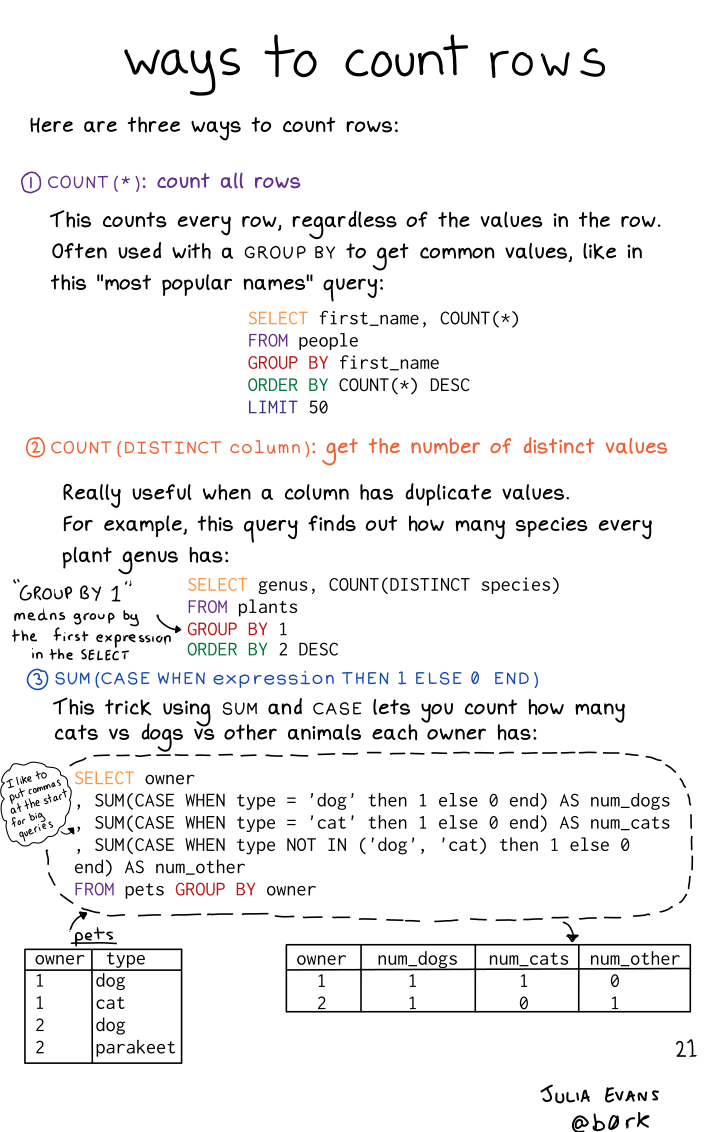 ways to count rows
Here are three ways to count rows:
① COUNT(*): count all rows
This counts every row, regardless of the values in the row.
Often used with a GROUP BY to get common values, like in
this "most popular names" query:
SELECT first_name, COUNT(*)
FROM people
GROUP BY first_name
ORDER BY COUNT(*) DESC
LIMIT 50
② COUNT(DISTINCT column): get the number of distinct values
Really useful when a column has duplicate values.
For example, this query finds out how many species every
plant genus has:
"GROUP BY 1"
means group by
the first expression
in the SELECT
SELECT genus, COUNT(DISTINCT species)
FROM plants
GROUP BY 1
ORDER BY 2 DESC
③ SUM(CASE WHEN expression THEN 1 ELSE 0 END)
This trick using SUM and CASE lets you count how many
cats vs dogs vs other animals each owner has:
I like to
put commas
at the start
for big
queries
SELECT owner
, SUM(CASE WHEN type = 'dog' then 1 else 0 end) AS num_dogs
, SUM(CASE WHEN type = 'cat' then 1 else 0 end) AS num_cats
, SUM(CASE WHEN type NOT IN ('dog', 'cat) then 1 else 0
end) AS num_other
FROM pets GROUP BY owner
pets
owner type
1 dog
1 cat
2 dog
2 parakeet
owner num_dogs num_cats num_other
1 1 1 0
2 1 0 1
21
JULIA EVANS
@b0rk